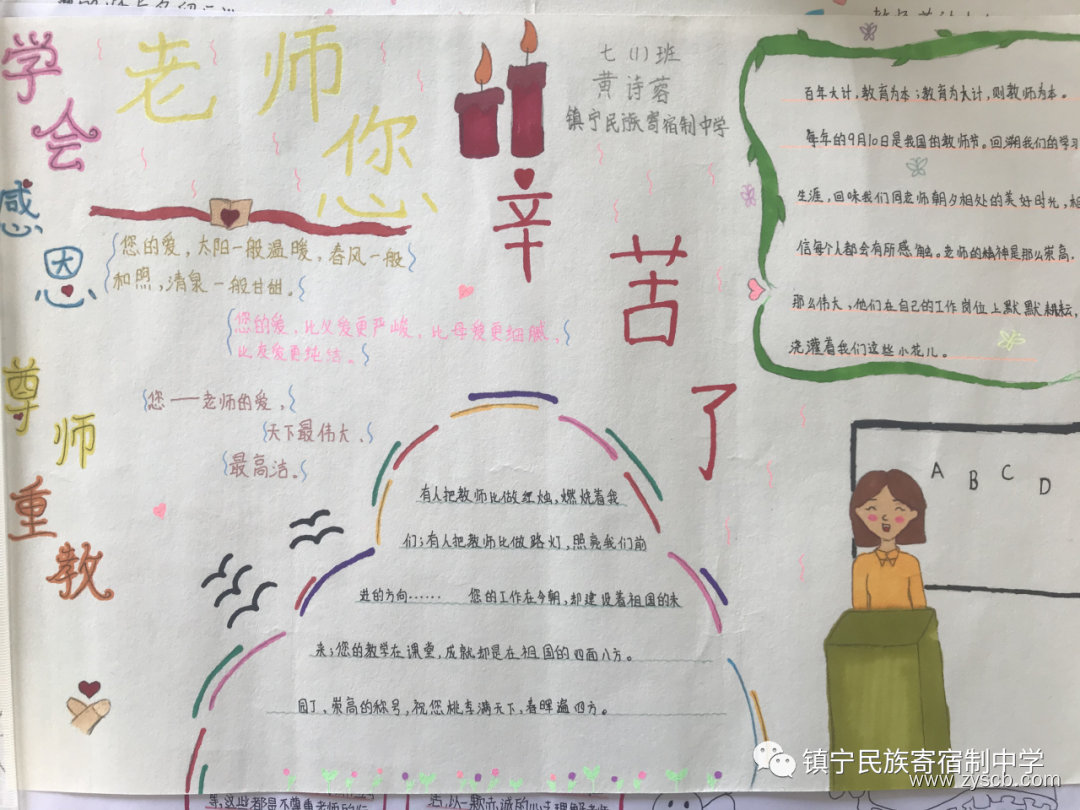 学会
感恩
尊师
重教
老师
您
辛苦了
七(1)班
黄诗蓉
镇宁民族寄宿制中学
您的爱，太阳一般温暖，春风一般
和照，清泉一般甘甜。
您的爱，比父爱更严峻，比母爱更细腻，
比友爱更纯洁。
您——老师的爱，
天下最伟大、
最高洁。
百年大计，教育为本；教育为大计，则教师为本。
每年的9月10日是我国的教师节。回溯我们的学习
生涯，回味我们同老师朝夕相处的美好时光，相
信每个人都会有所感触。老师的精神是那么崇高，
那么伟大，他们在自己的工作岗位上默默耕耘，
浇灌着我们这些小花儿。
有人把教师比做红烛，燃烧着我
们；有人把教师比做路灯，照亮我们前
进的方向…… 您的工作在今朝，却建设着祖国的未
来；您的教学在课堂，成就却是在祖国的四面八方。
园丁，崇高的称号，祝您桃李满天下，春晖遍四方。
A B C D
镇宁民族寄宿制中学
www.zyscb.com